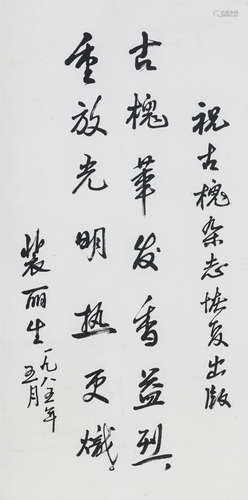 祝古槐杂志恢复出版
古槐華发香益烈
重放光明热更熾。
裴丽生一九八五年
五月